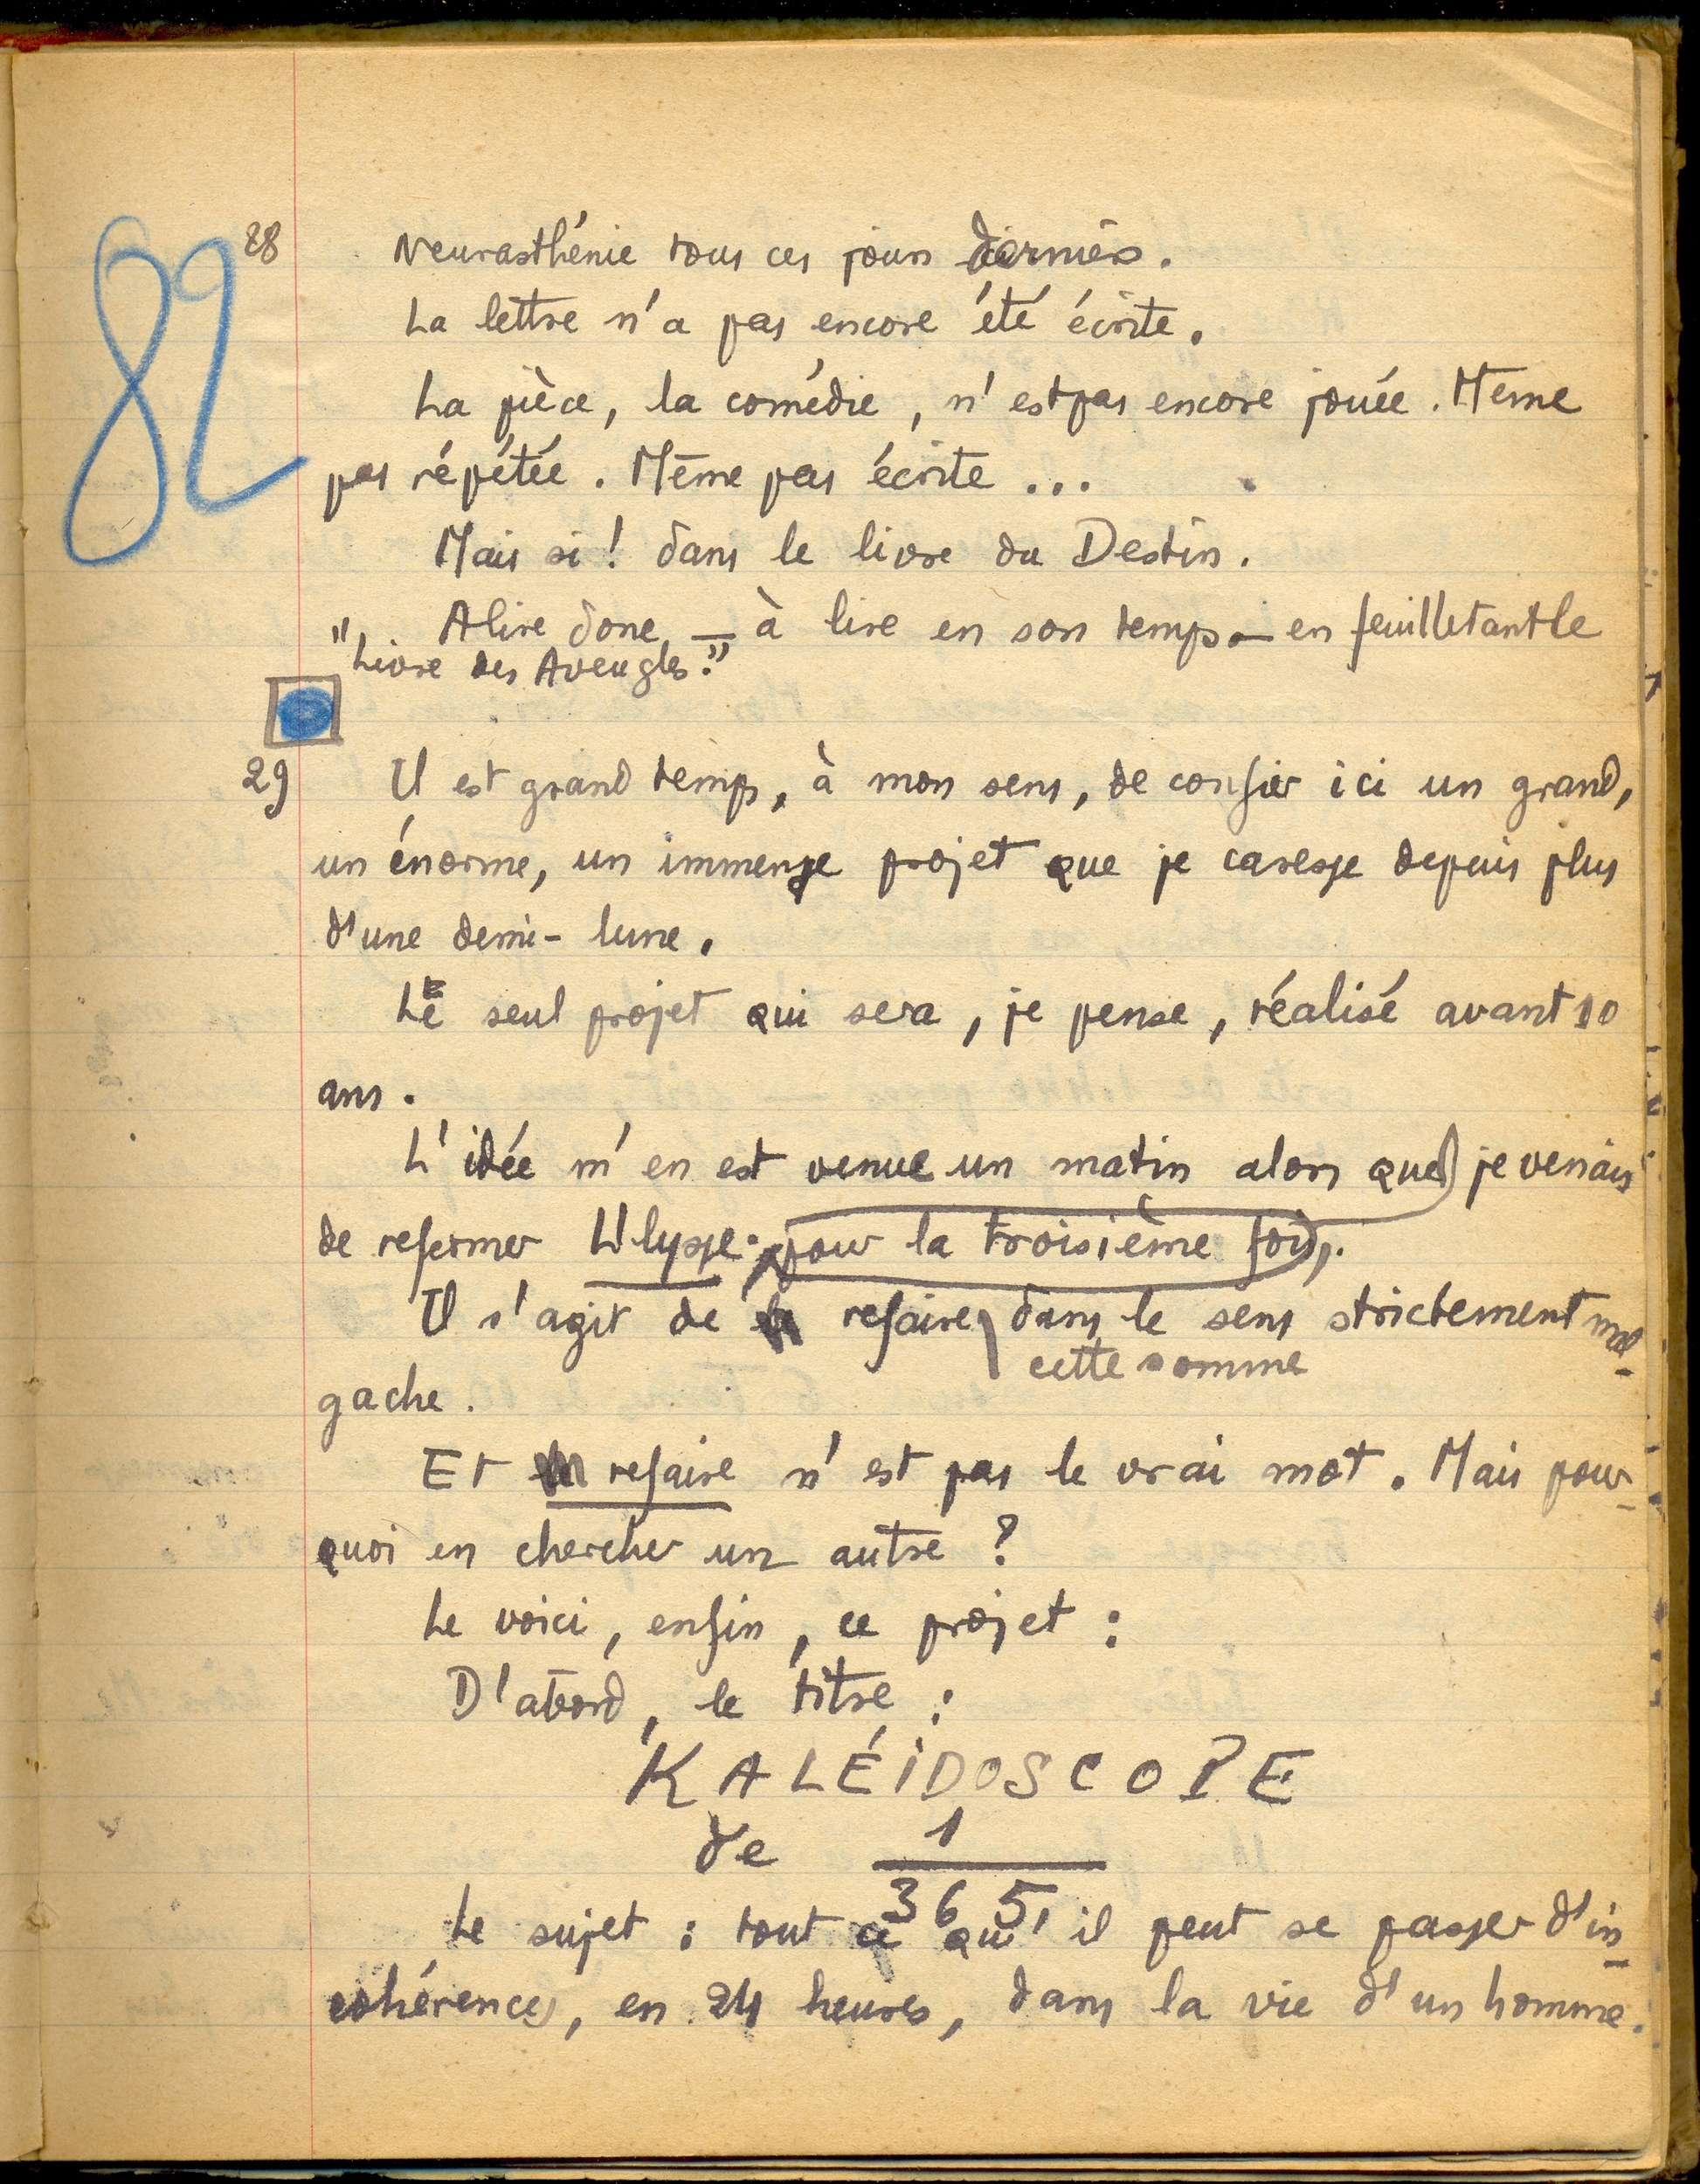 82
28 Neurasthénie tous ces jours derniers.
La lettre n'a pas encore été écrite.
La pièce, la comédie, n'est pas encore jouée. Même
pas répétée. Même pas écrite...
Mais si! dans le livre du Destin.
A lire donc — à lire en son temps — en feuilletant le
"Livre des Aveugles."
29 Il est grand temps, à mon sens, de confier ici un grand,
un énorme, un immense projet que je caresse depuis plus
d'une demi-lune.
Le seul projet qui sera, je pense, réalisé avant 10
ans.
L'idée m'en est venue un matin alors que je venais
de refermer Ulysse pour la troisième fois.
Il s'agit de refaire dans le sens strictement mal-
cette somme
gache.
Et refaire n'est pas le vrai mot. Mais pour-
quoi en chercher un autre ?
Le voici, enfin, ce projet :
D'abord, le titre :
KALÉIDOSCOPE
de 1
365
Le sujet : tout ce qu'il peut se passer d'in-
cohérences, en 24 heures, dans la vie d'un homme.